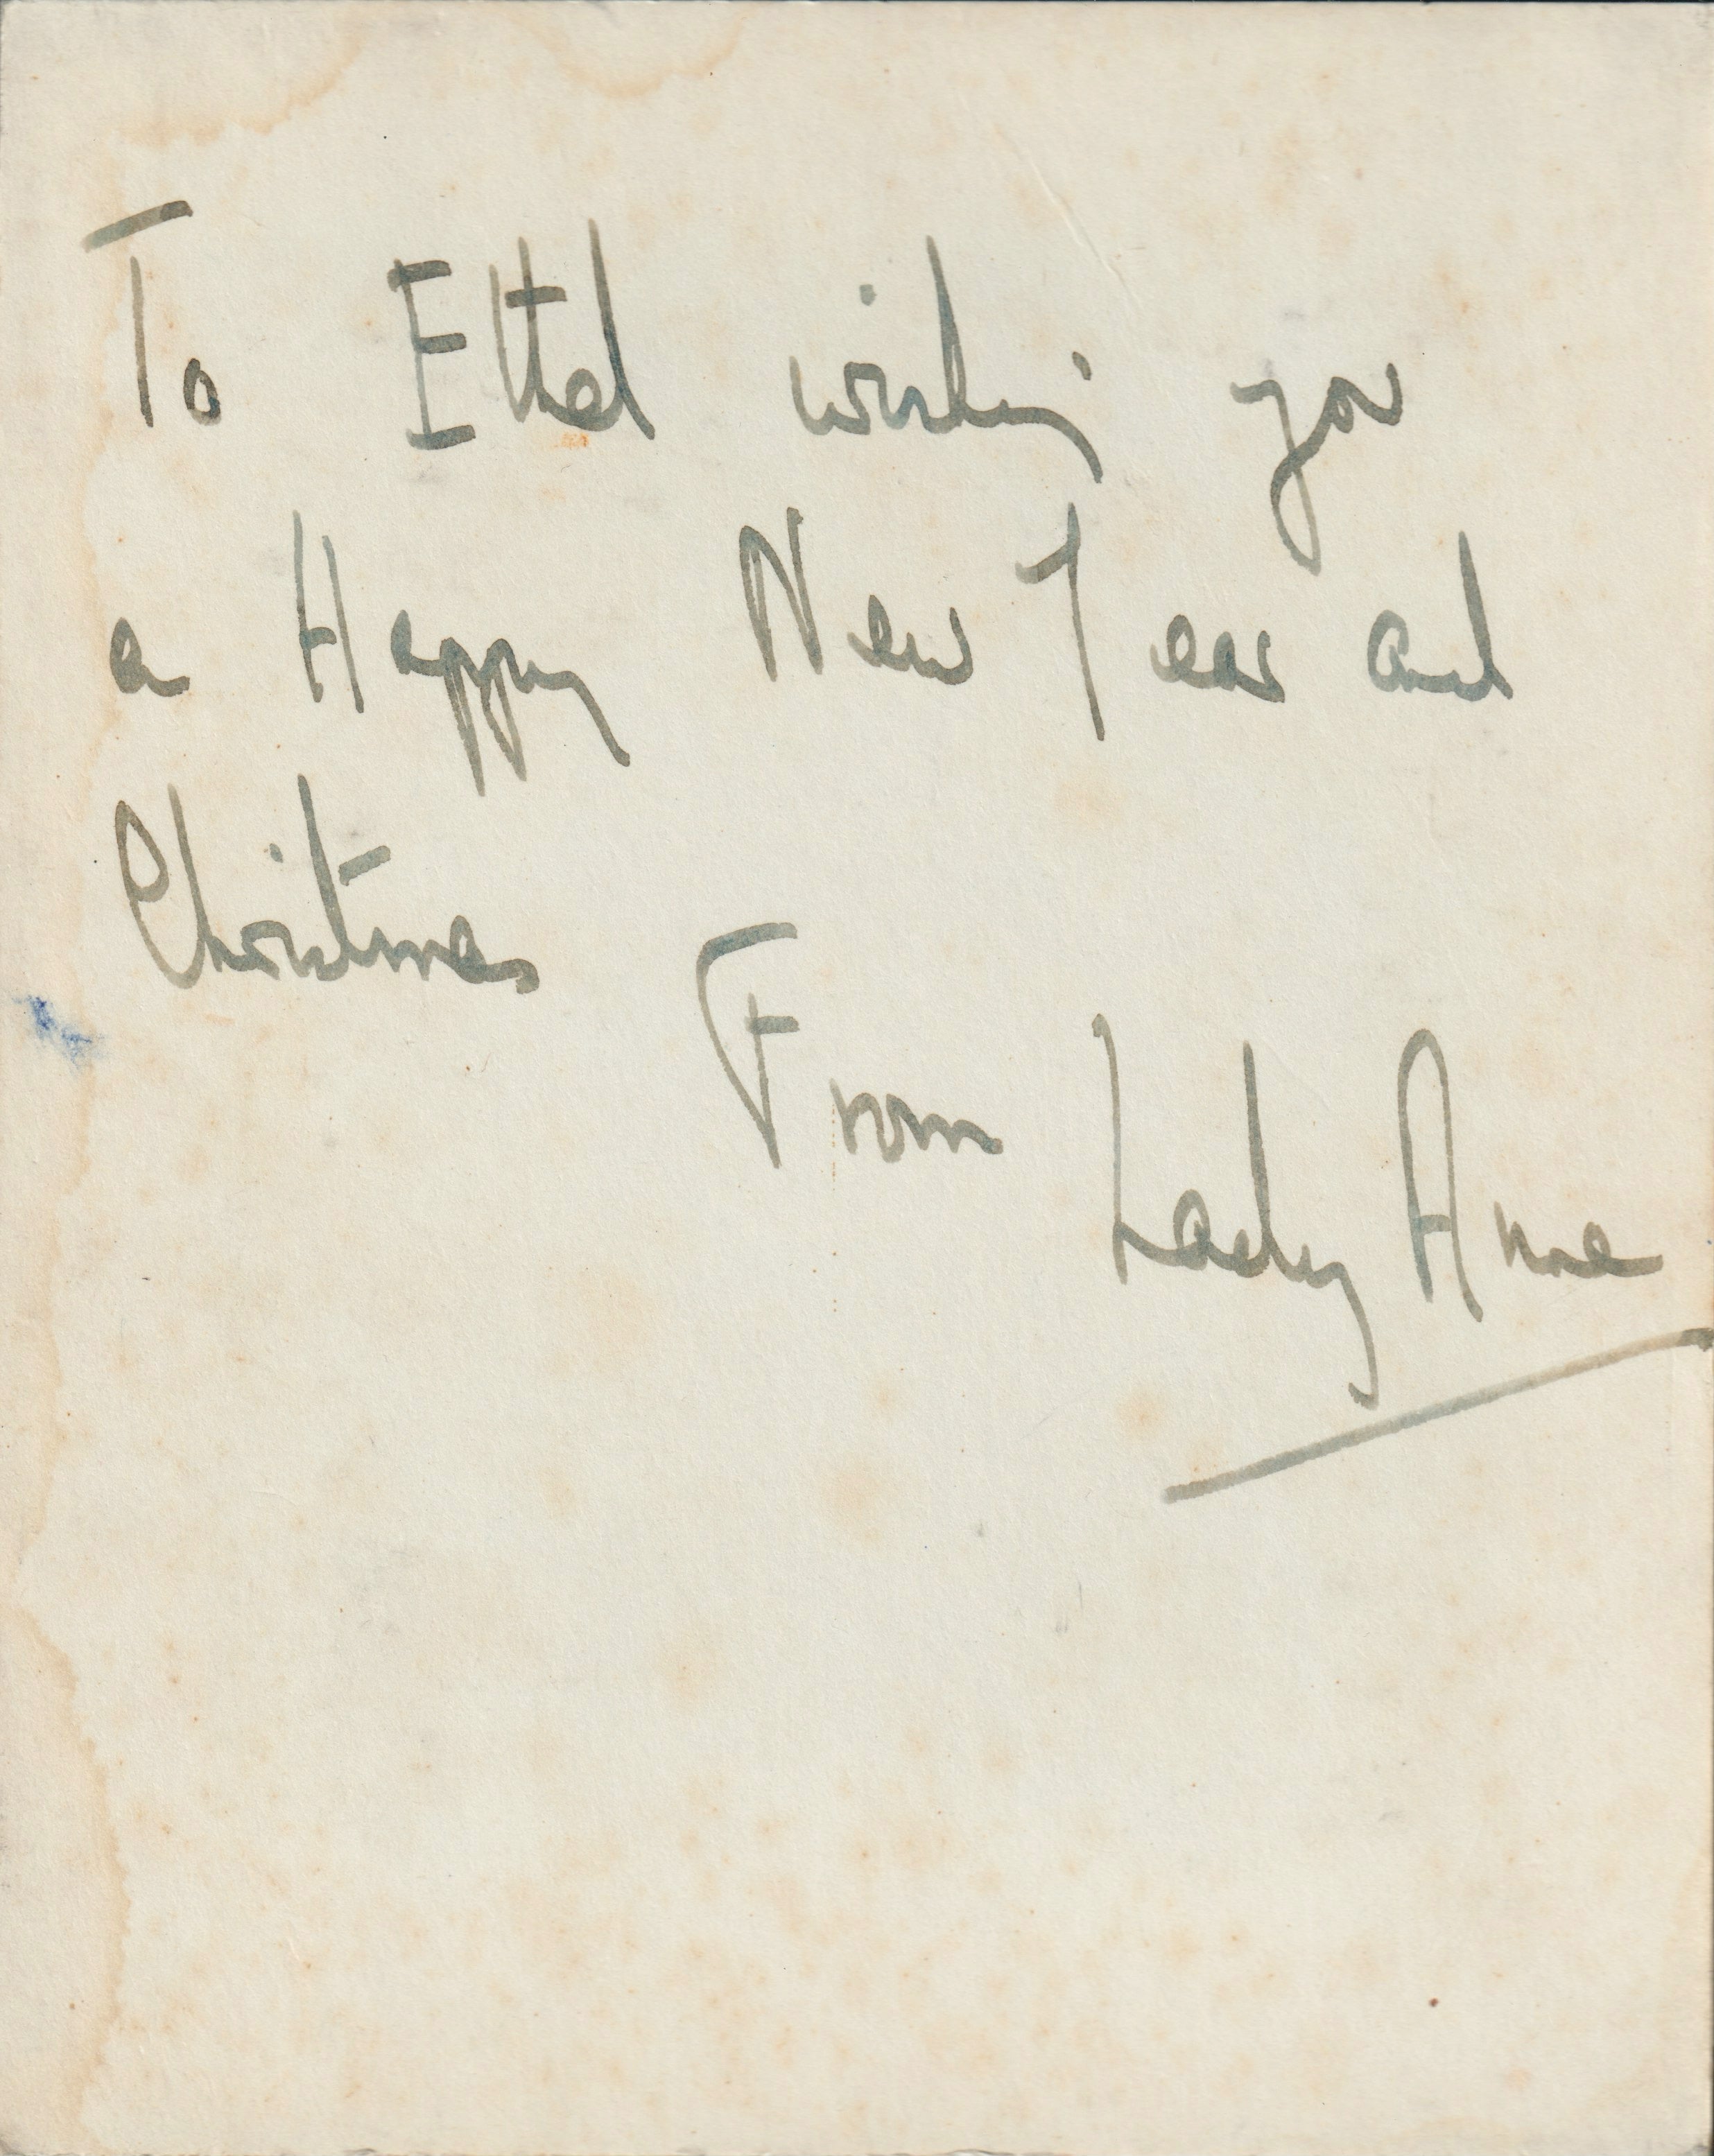 To Ethel wishing you
a Happy New Year and
Christmas
From
Lady Anne